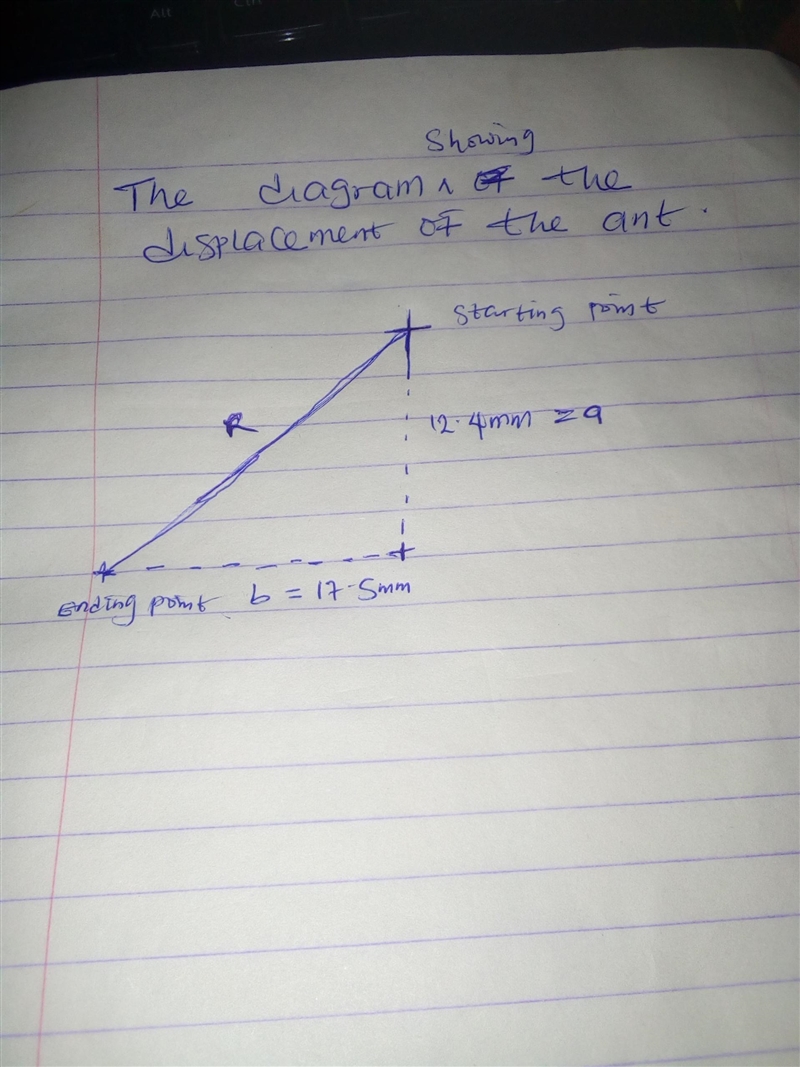 Showing
The diagram ∧ of the
displacement of the ant.
Starting point
R
12.4mm = a
Ending point b = 17.5mm